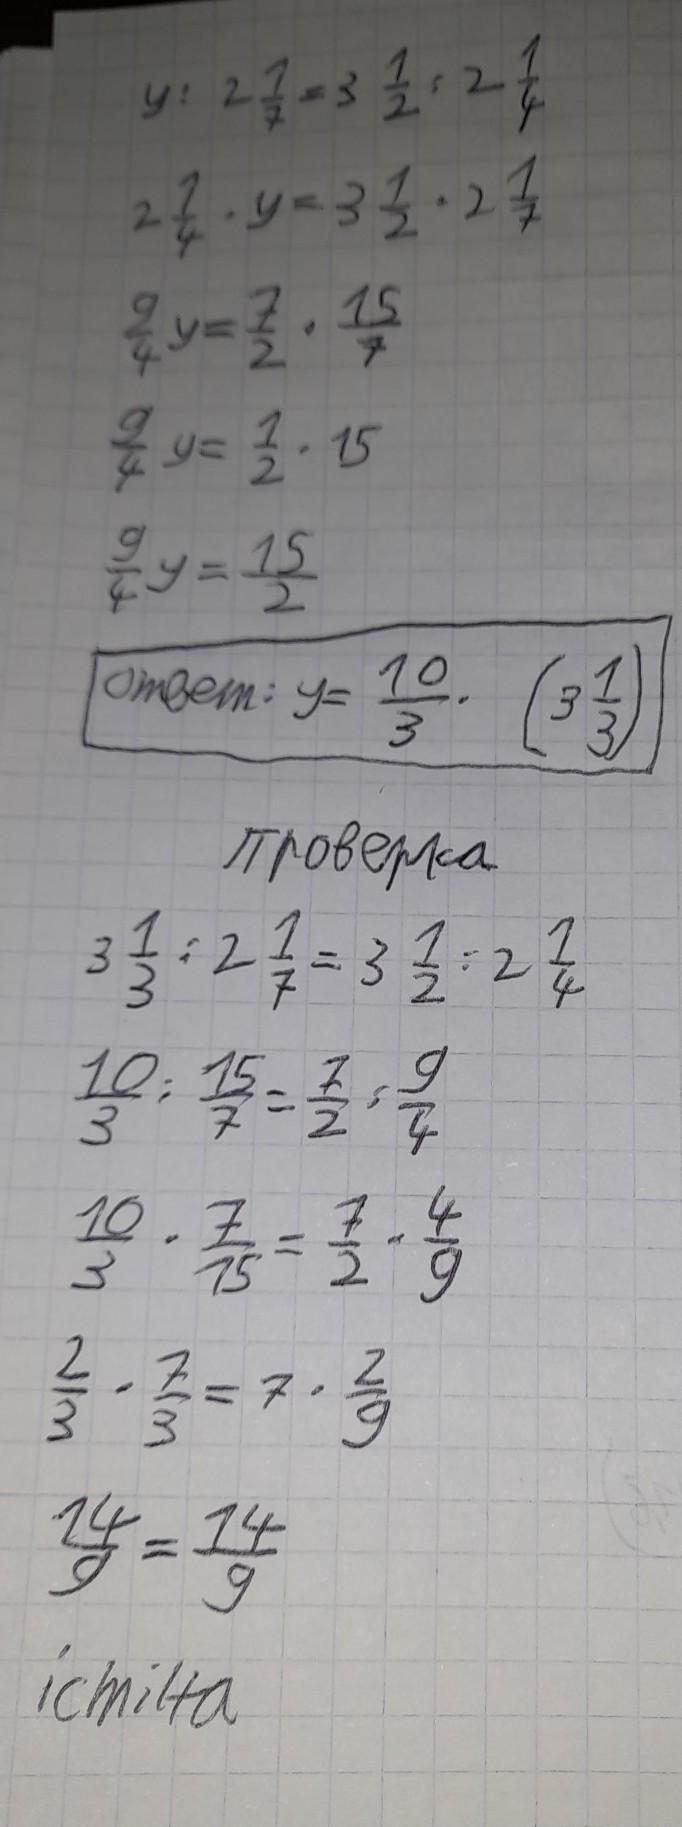 y : 2 1/7 = 3 1/2 : 2 1/4
2 1/4 · y = 3 1/2 · 2 1/7
9/4 y = 7/2 · 15/7
9/4 y = 1/2 · 15
9/4 y = 15/2
ответ: y = 10/3. (3 1/3)
проверка
3 1/3 ÷ 2 1/7 = 3 1/2 ÷ 2 1/4
10/3 : 15/7 = 7/2 : 9/4
10/3 · 7/15 = 7/2 · 4/9
2/3 · 7/3 = 7 · 2/9
14/9 = 14/9
істіна